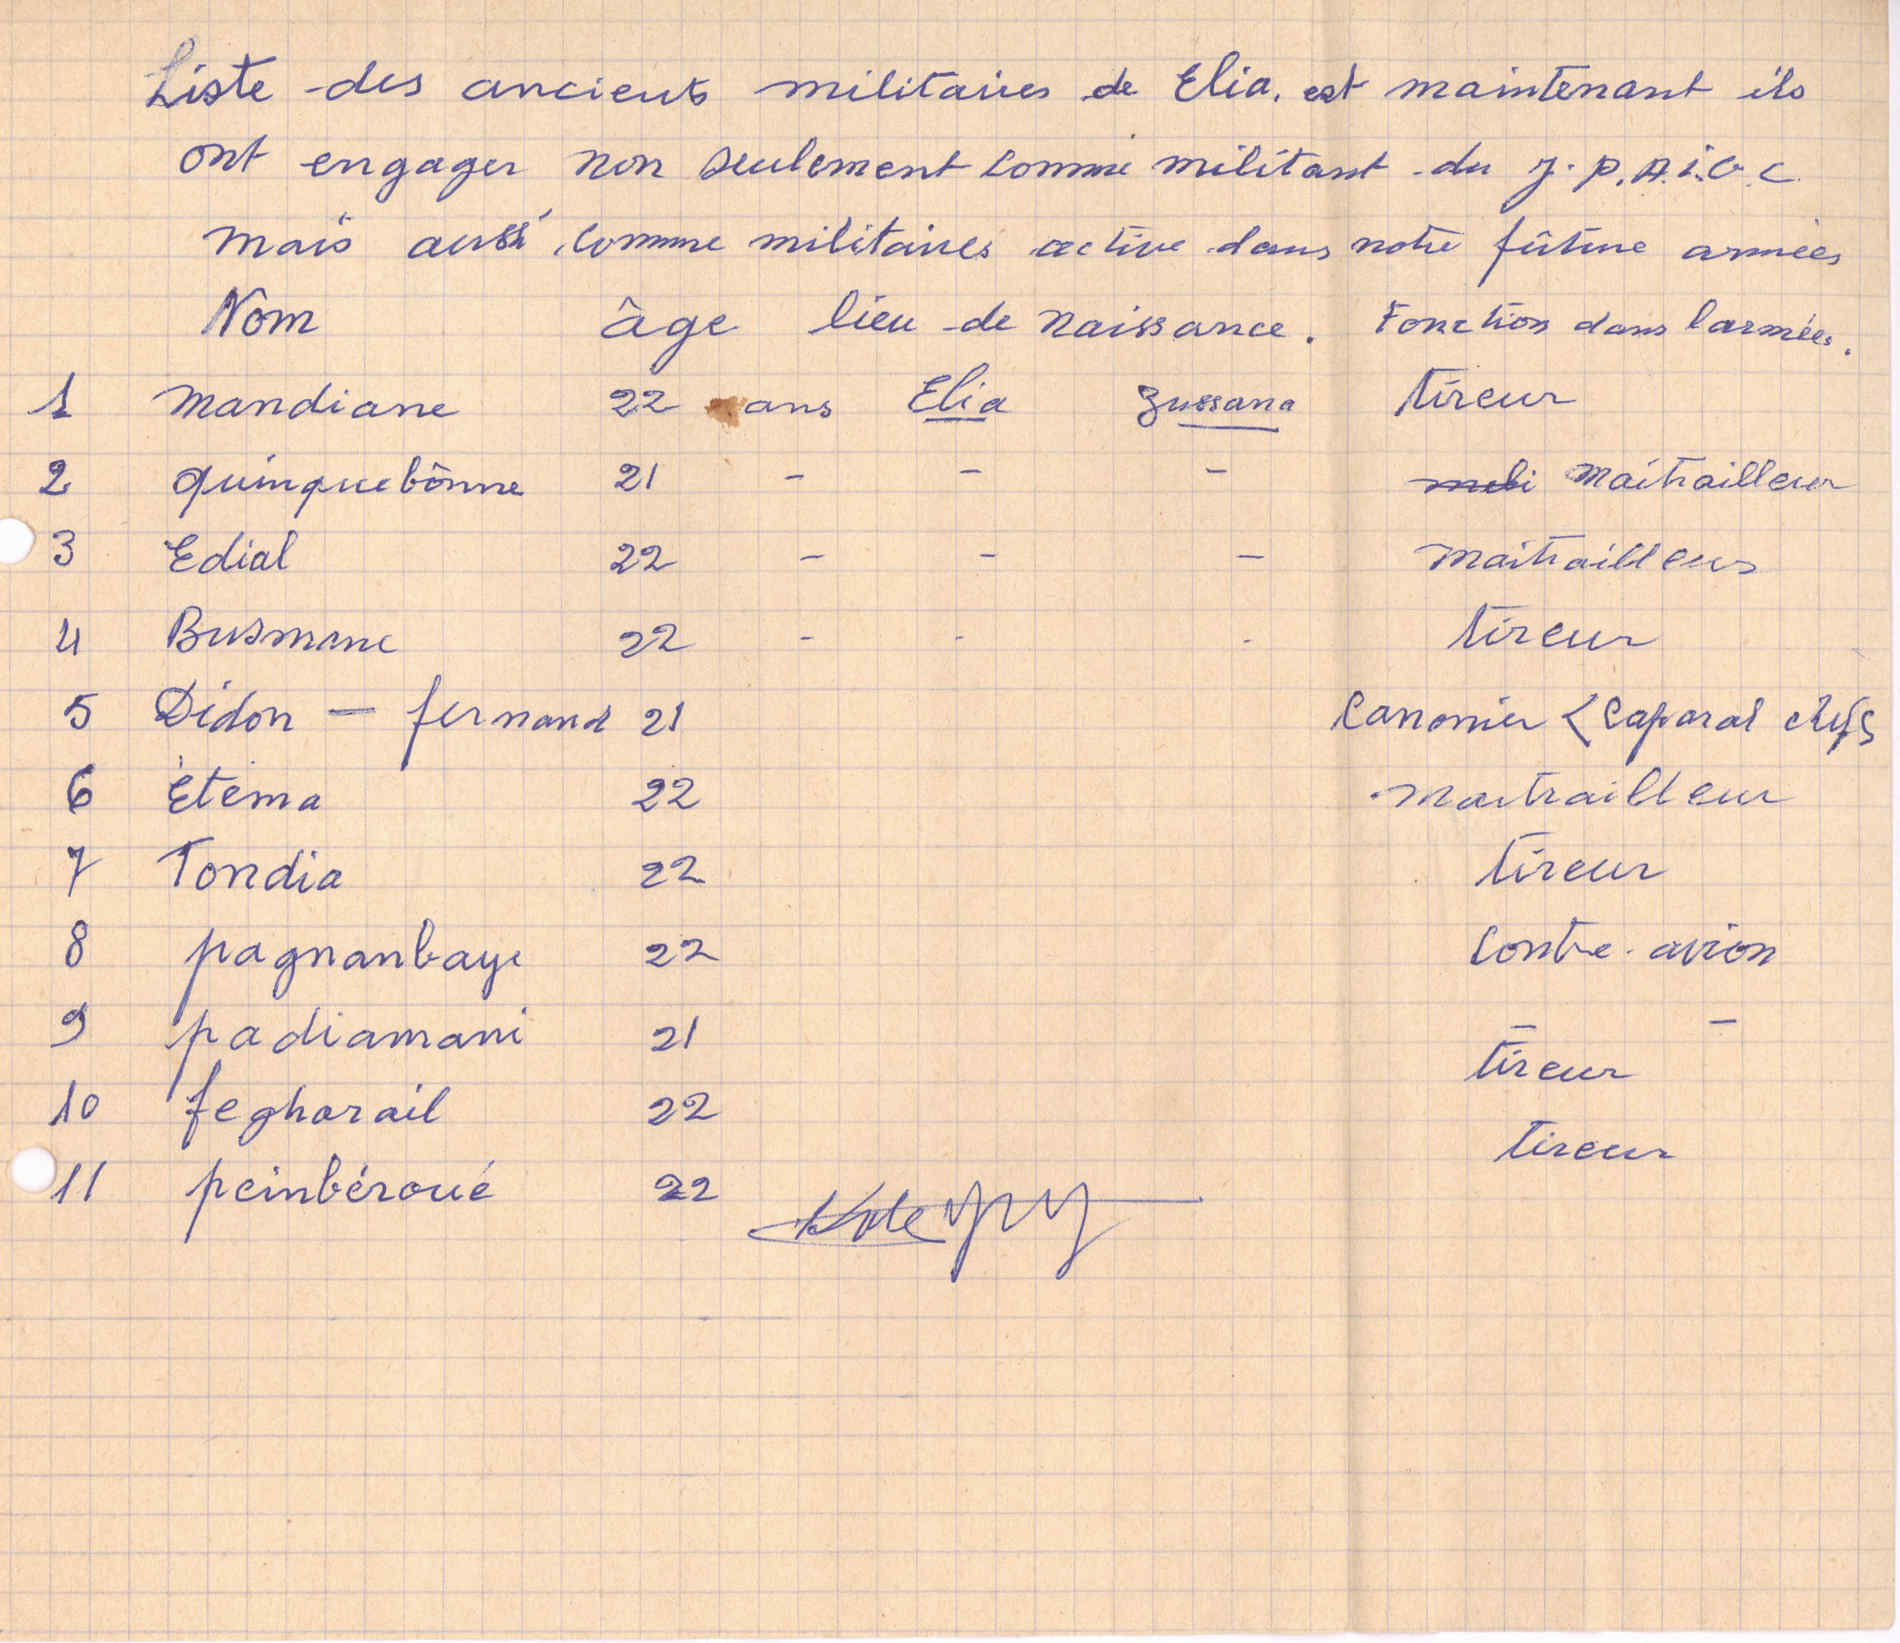 Liste des anciens militaires de Elia. est maintenant ils
ont engager non seulement comme militant du J.P.A.i.G.C.
mais aussi comme militaires active dans notre fûture armées
Nom âge lieu de naissance. Fonction dans l'armées.
1 Mandiane 22 ans Elia Zussana tireur
2 quinquebônne 21 - - - Maitrailleur
3 Edial 22 - - - maitrailleur
4 Busmane 22 - - - tireur
5 Didon - fernand 21 Canonier < Caparal chefs
6 Etéma 22 maitrailleur
7 Tondia 22 tireur
8 pagnanbaye 22 Contre-avion
9 padiamani 21 - -
10 fegharail 22 tireur
11 peinbéroué 22 tireur